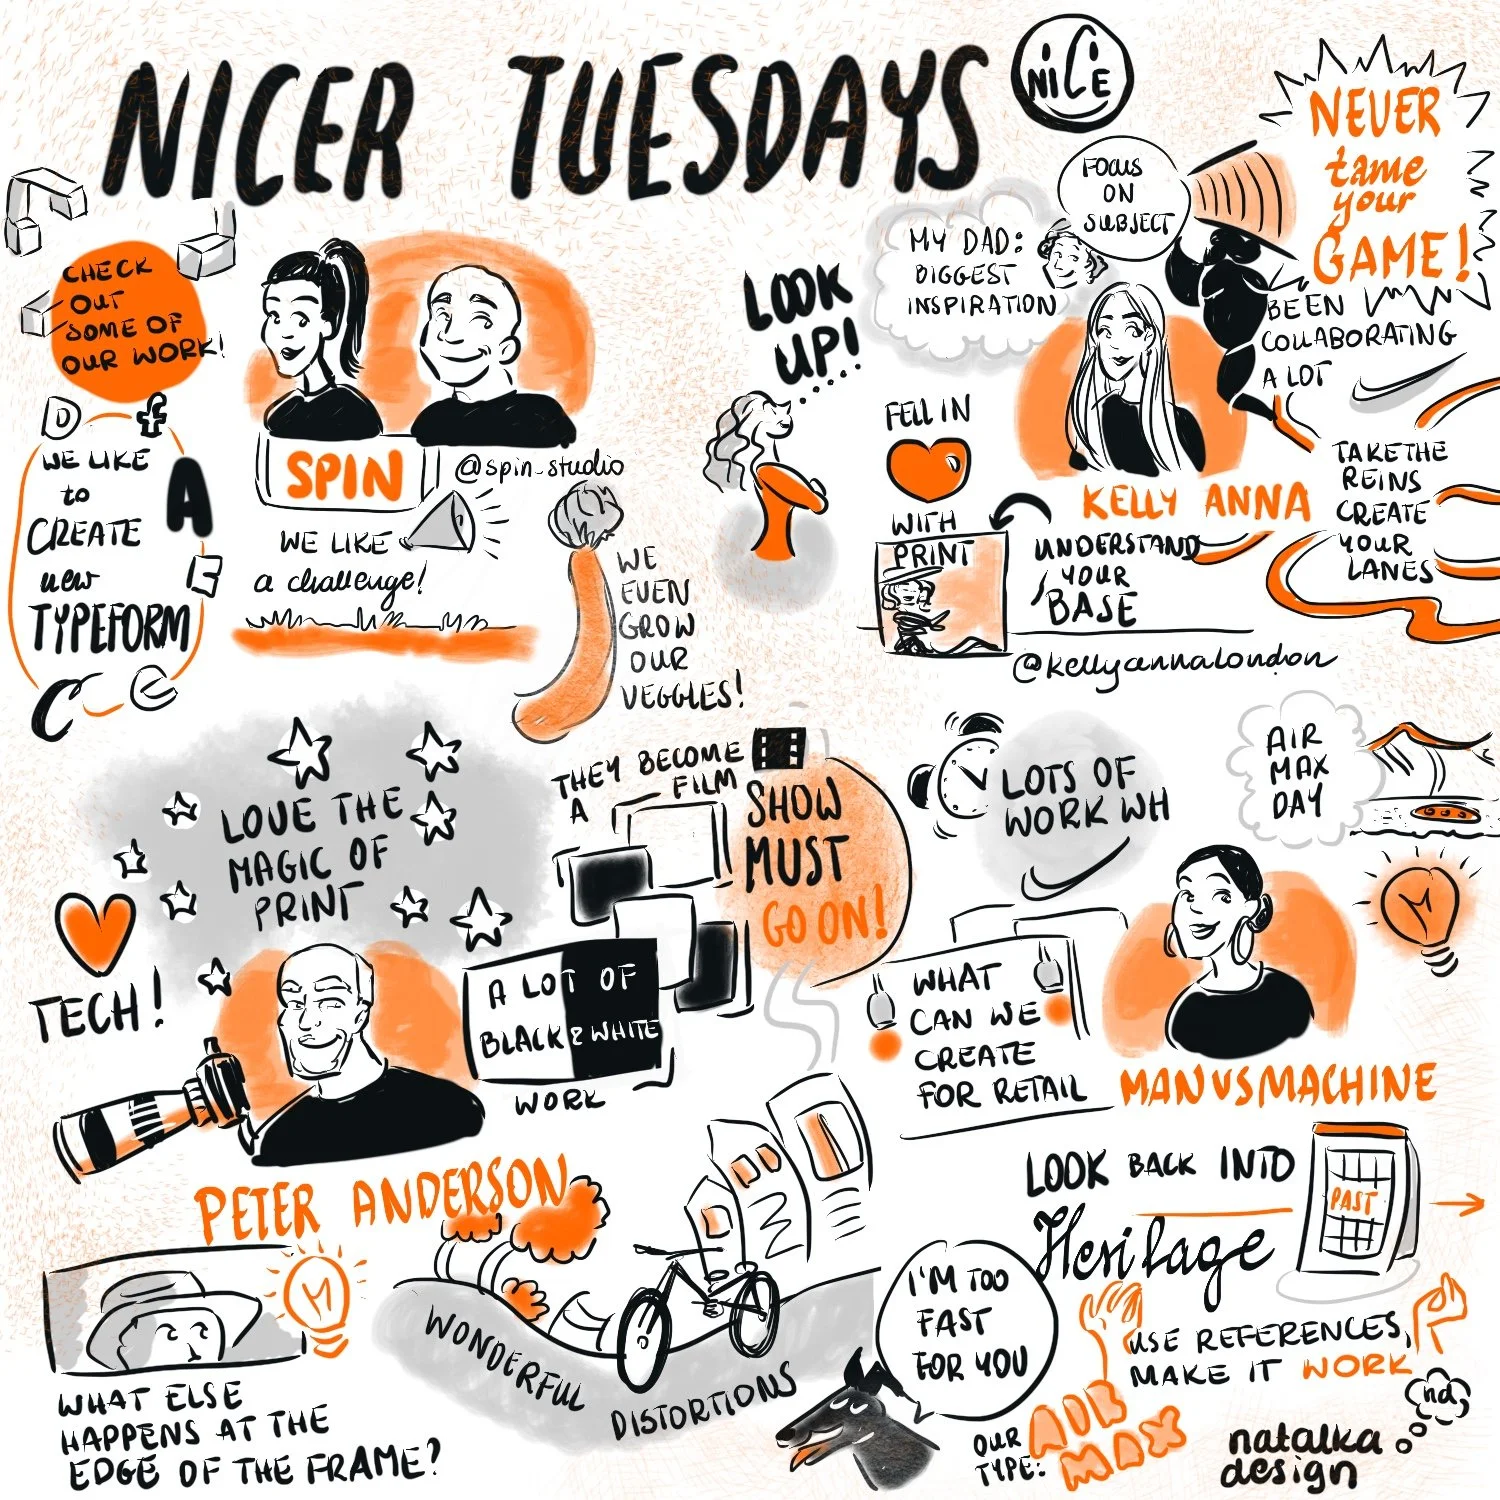 NICER TUESDAYS
NICE
CHECK
OUT
SOME OF
OUR WORK!
D f
WE LIKE
to
CREATE
new
TYPEFORM
A
E
C
e
SPIN
@spin_studio
WE LIKE
a challenge!
WE
EVEN
GROW
OUR
VEGGLES!
LOOK
UP!
MY DAD:
BIGGEST
INSPIRATION
FOCUS
ON
SUBJECT
NEVER
tame
your
GAME!
BEEN
COLLABORATING
A LOT
FELL IN
WITH
PRINT
KELLY ANNA
UNDERSTAND
YOUR
BASE
@kellyannalondon
TAKE THE
REINS
CREATE
YOUR
LANES
LOVE THE
MAGIC OF
PRINT
TECH!
THEY BECOME
A FILM
SHOW
MUST
GO ON!
A LOT OF
BLACK & WHITE
WORK
PETER ANDERSON
WHAT ELSE
HAPPENS AT THE
EDGE OF THE FRAME?
WONDERFUL
DISTORTIONS
LOTS OF
WORK WH
AIR
MAX
DAY
WHAT
CAN WE
CREATE
FOR RETAIL
MANVSMACHINE
LOOK BACK INTO
Heritage
PAST
I'M TOO
FAST
FOR YOU
USE REFERENCES,
MAKE IT WORK
OUR
TYPE:
AIR
MAX
nd
natalka
design